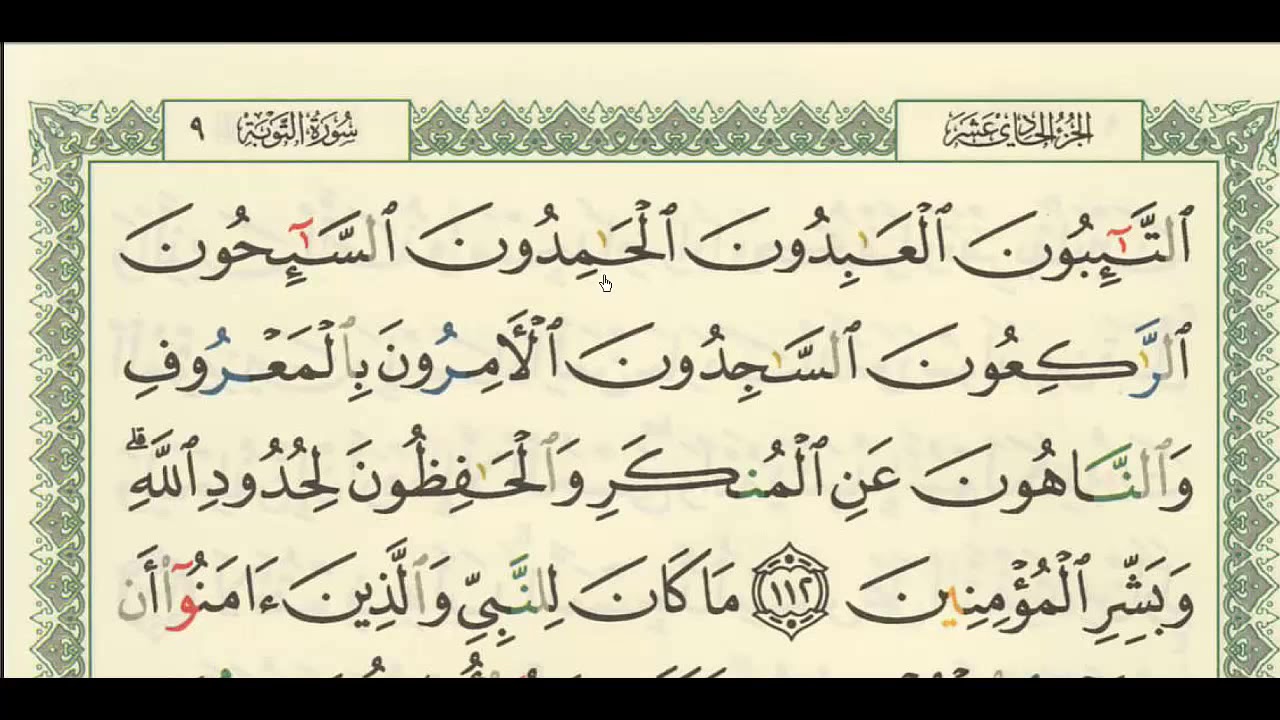 الجزء الحادي عشر
سورة التوبة ٩
ٱلتَّـٰٓئِبُونَ ٱلْعَـٰبِدُونَ ٱلْحَـٰمِدُونَ ٱلسَّـٰٓئِحُونَ
ٱلرَّٰكِعُونَ ٱلسَّـٰجِدُونَ ٱلْأَمِرُونَ بِٱلْمَعْرُوفِ
وَٱلنَّاهُونَ عَنِ ٱلْمُنكَرِ وَٱلْحَـٰفِظُونَ لِحُدُودِ ٱللَّهِ ۗ
وَبَشِّرِ ٱلْمُؤْمِنِينَ ١١٢ مَا كَانَ لِلنَّبِيِّ وَٱلَّذِينَ ءَامَنُوٓا۟ أَن